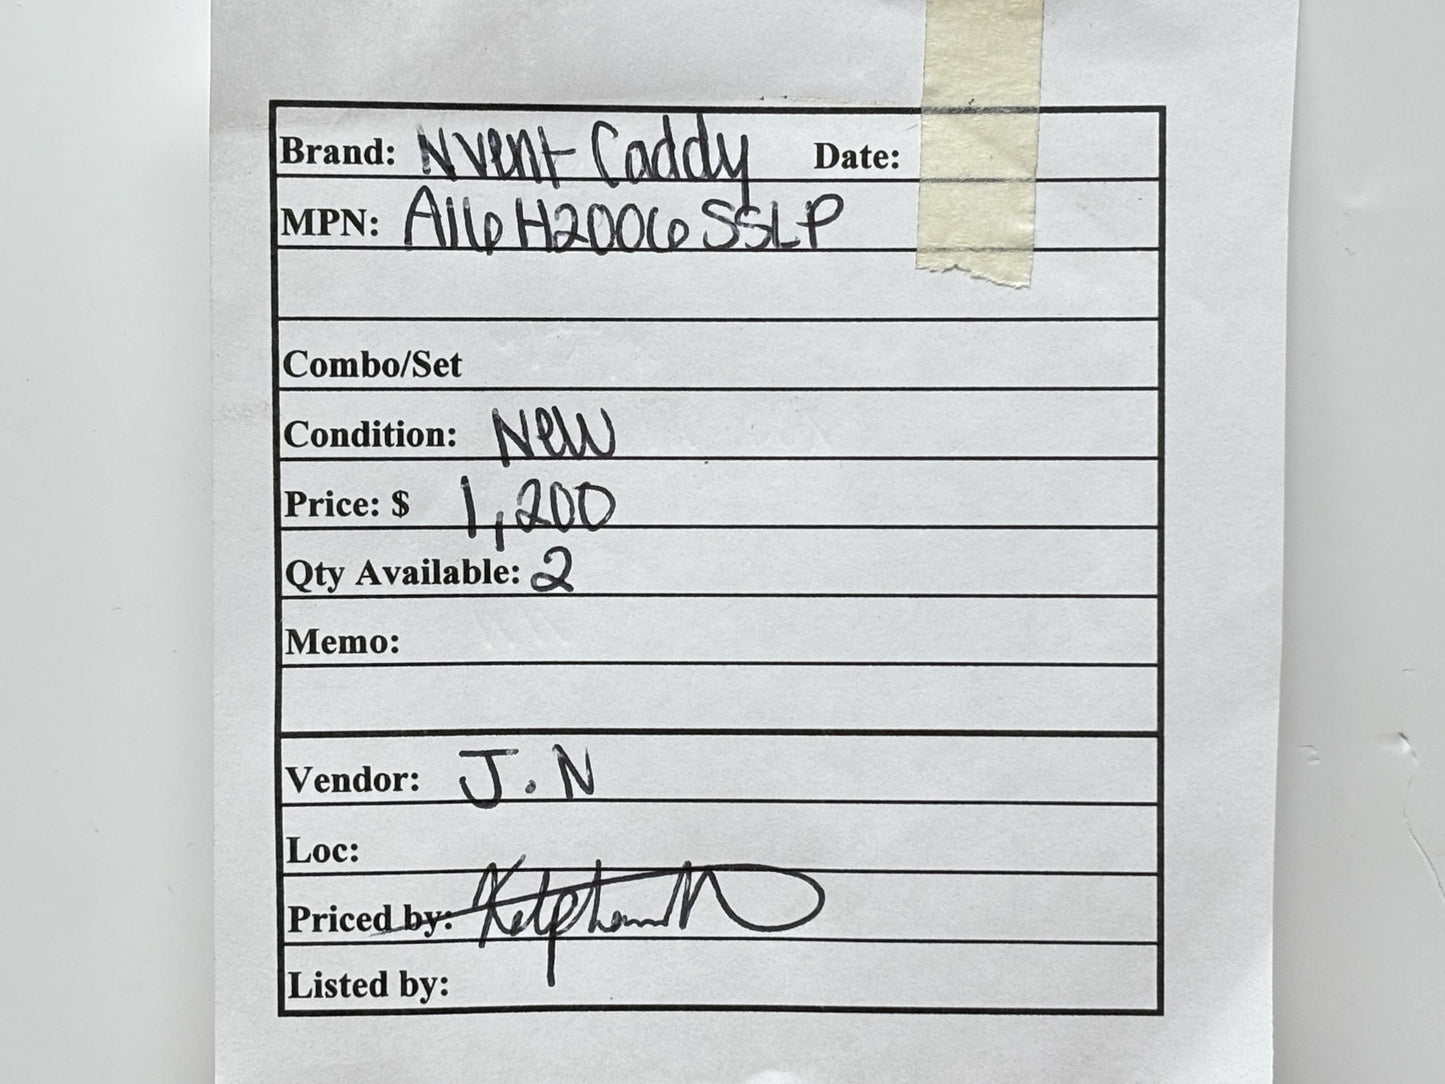 Brand: Nvent Caddy Date:
MPN: A16H2006SSLP
Combo/Set
Condition: New
Price: $ 1,200
Qty Available: 2
Memo:
Vendor: J.N
Loc:
Priced by:
Listed by: